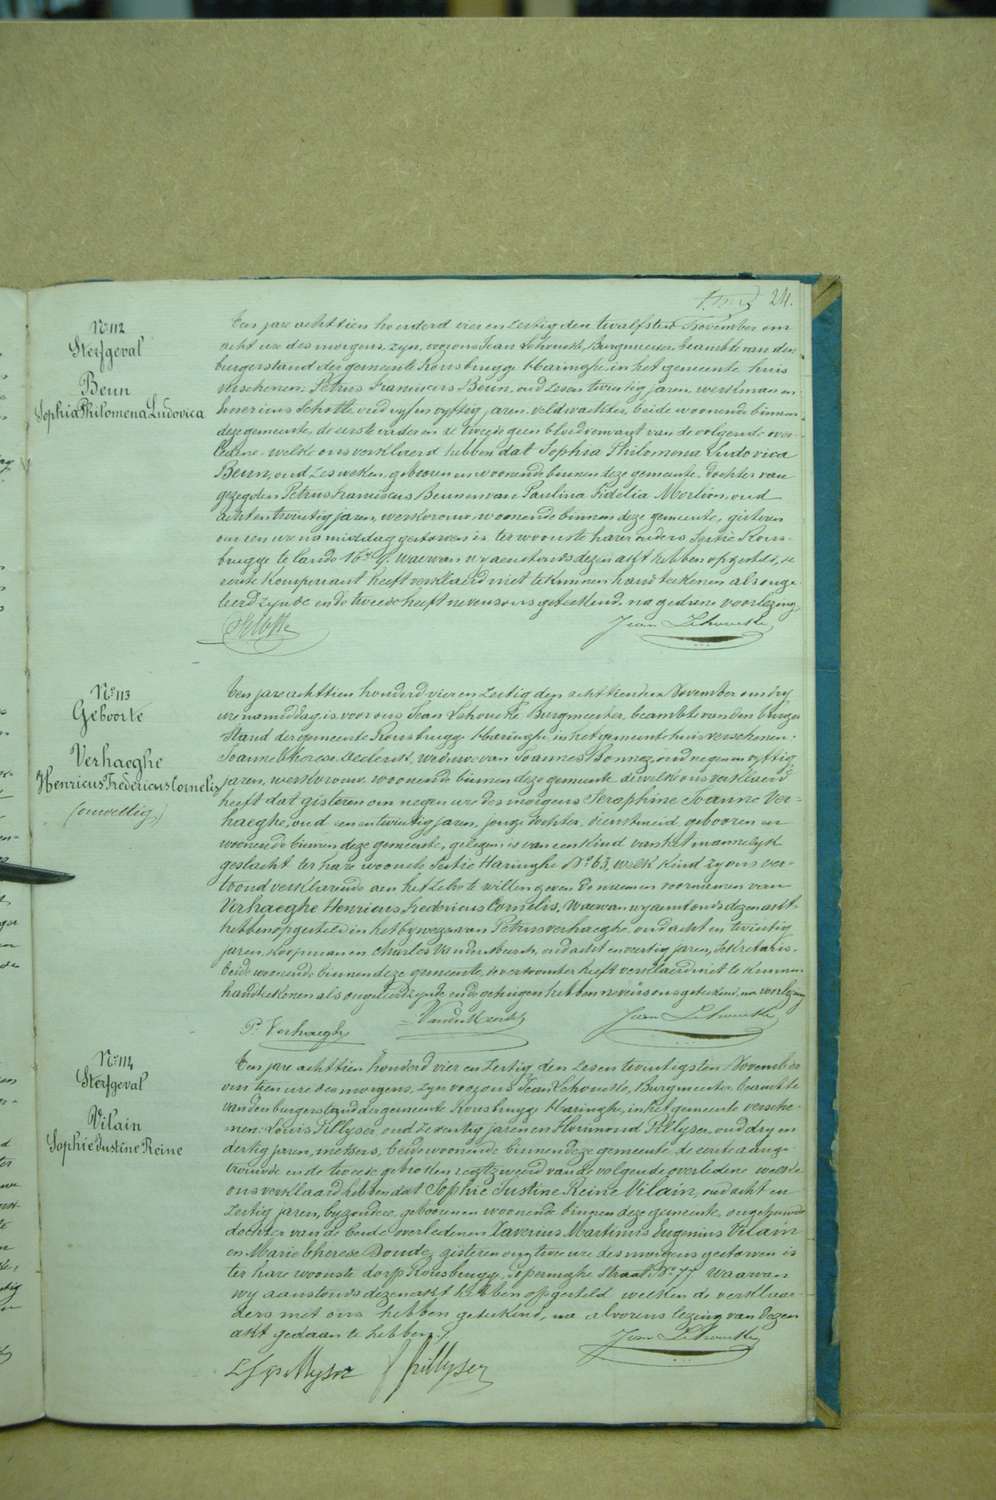 24.
N° 112
Sterfgeval
Beun
Sophia Philomena Ludovica
Ten jare achttien honderd vier en zestig den twalfsten November om
acht ure des morgens, zyn, voor ons Jean Lehoucke, Burgmeester, beambte van den
burgerstand der gemeente Rousbrugge Haringhe, in het gemeente huis
verschenen: Petrus Franciscus Beun, oud zesen twintig jaren, werkman en
Henricus Schotte oud vyf en vyftig jaren, veldwachter, beide woonende binnen
deze gemeente, de eerste vader en de tweede geen bloedverwant van de volgende over-
ledene welke ons verklaerd hebben dat Sophia Philomena Ludovica
Beun, oud zes weken, gebooren en woonende binnen deze gemeente, dochter van
gezegden Petrus Franciscus Beun en van Paulina Fidelia Merlion, oud
acht en twintig jaren, werkvrouw, woonende binnen deze gemeente, gisteren
om een ure na middag gestorven is ter woonste harer ouders Sectie Rous-
brugge te lande Waervan wy aenstonds dezen akt hebben opgesteld, de
eerste komparant heeft verklaerd niet te kunnen handteekenen als onge-
leerd zynde en de tweede heeft nevens ons geteekend, na gedane voorlezing
Jean Lehoucke
N° 113
Geboorte
Verhaeghe
Henricus Fredericus Cornelis
(onwettig)
Ten jare achttien honderd vier en zestig den achttienden November om dry
ure namiddag is voor ons Jean Lehoucke Burgmeester, beambte van den burger
stand der gemeente Rousbrugge Haringhe, in het gemeente huis verschenen:
Joanne Therese weduwe van Joannes Bonnez oud negen en vyftig
jaren, werkvrouw, woonende binnen deze gemeente dewelke ons verklaerd
heeft dat gisteren om negen ure des morgens Seraphine Joanne Ver-
haeghe, oud een en twintig jaren, jonge dochter, dienstmeid gebooren en
woonende binnen deze gemeente, gelegen is van een kind van het mannelyk
geslacht ter hare woonste Sectie Haringhe N° 63, welk kind zy ons ver-
toond verklarende aen hetzelve te willen geven de naemen voornamen van
Verhaeghe Henricus Fredericus Cornelis. Waervan wy aenstonds dezen akt
hebben opgesteld in het bywezen van Petrus Verhaeghe, oud acht en twintig
jaren, koopman en Charles oud acht en veertig jaren, Sekretaris
beide woonende binnen deze gemeente, de vertoonster heeft verklaerd niet te kunnen
handteekenen als ongeleerd zynde en de getuigen hebben nevens ons geteekend, na voorlezing
P. Verhaeghe
Jean Lehoucke
N° 114
Sterfgeval
Vilain
Sophie Justine Reine
Ten jare achttien honderd vier en zestig den zesen twintigsten November
om tien ure des morgens, zyn voor ons Jean Lehoucke, Burgmeester, beambte
van den burgerstand der gemeente Rousbrugge Haringhe, in het gemeente versche-
nen: Louis Fillyser oud zeventig jaren en Florimond Fillyser, oud dry en
dertig jaren, metsers, beide woonende binnen deze gemeente, de eerste aenge-
trouwde en de tweede gebroeders regtzweerd van de volgende overledene welke
ons verklaard hebben dat Sophie Justine Reine Vilain, oud acht en
zestig jaren, byzondere, gebooren en woonende binnen deze gemeente, ongehuwde
dochter van de beide overledenen Xaverius Martinus Eugenius Vilain
en Marie Therese Doude, gisteren om twee ure des morgens gestorven is
ter hare woonste dorp Rousbrugge, Iperinghe straat N° 77 waarvan
wy aenstonds dezen akt hebben opgesteld welken de verklaar-
ders met ons hebben geteekend, na alvorens lezing van dezen
akt gedaan te hebben.
Jean Lehoucke
L Fillyser F Fillyser